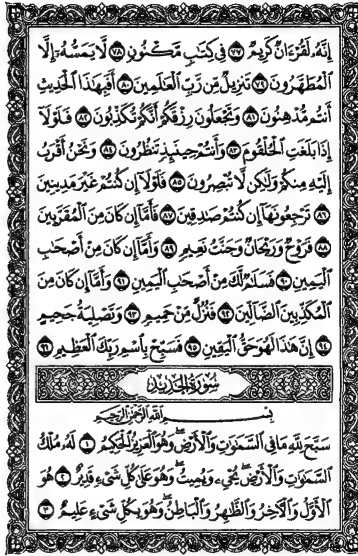 إِنَّهُۥ لَقُرْءَانٌ كَرِيمٌ ٧٧ فِى كِتَٰبٍ مَّكْنُونٍ ٧٨ لَّا يَمَسُّهُۥٓ إِلَّا
ٱلْمُطَهَّرُونَ ٧٩ تَنزِيلٌ مِّن رَّبِّ ٱلْعَٰلَمِينَ ٨٠ أَفَبِهَٰذَا ٱلْحَدِيثِ
أَنتُم مُّدْهِنُونَ ٨١ وَتَجْعَلُونَ رِزْقَكُمْ أَنَّكُمْ تُكَذِّبُونَ ٨٢ فَلَوْلَآ
إِذَا بَلَغَتِ ٱلْحُلْقُومَ ٨٣ وَأَنتُمْ حِينَئِذٍ تَنظُرُونَ ٨٤ وَنَحْنُ أَقْرَبُ
إِلَيْهِ مِنكُمْ وَلَٰكِن لَّا تُبْصِرُونَ ٨٥ فَلَوْلَآ إِن كُنتُمْ غَيْرَ مَدِينِينَ
٨٦ تَرْجِعُونَهَآ إِن كُنتُمْ صَٰدِقِينَ ٨٧ فَأَمَّآ إِن كَانَ مِنَ ٱلْمُقَرَّبِينَ
٨٨ فَرَوْحٌ وَرَيْحَانٌ وَجَنَّتُ نَعِيمٍ ٨٩ وَأَمَّآ إِن كَانَ مِنْ أَصْحَٰبِ
ٱلْيَمِينِ ٩٠ فَسَلَٰمٌ لَّكَ مِنْ أَصْحَٰبِ ٱلْيَمِينِ ٩١ وَأَمَّآ إِن كَانَ مِنَ
ٱلْمُكَذِّبِينَ ٱلضَّآلِّينَ ٩٢ فَنُزُلٌ مِّنْ حَمِيمٍ ٩٣ وَتَصْلِيَةُ جَحِيمٍ
٩٤ إِنَّ هَٰذَا لَهُوَ حَقُّ ٱلْيَقِينِ ٩٥ فَسَبِّحْ بِٱسْمِ رَبِّكَ ٱلْعَظِيمِ ٩٦
سُورَةُ الحَدِيدِ
بِسْمِ ٱللَّهِ ٱلرَّحْمَٰنِ ٱلرَّحِيمِ
سَبَّحَ لِلَّهِ مَا فِى ٱلسَّمَٰوَٰتِ وَٱلْأَرْضِ وَهُوَ ٱلْعَزِيزُ ٱلْحَكِيمُ ١ لَهُۥ مُلْكُ
ٱلسَّمَٰوَٰتِ وَٱلْأَرْضِ يُحْىِۦ وَيُمِيتُ وَهُوَ عَلَىٰ كُلِّ شَىْءٍ قَدِيرٌ ٢ هُوَ
ٱلْأَوَّلُ وَٱلْءَاخِرُ وَٱلظَّٰهِرُ وَٱلْبَاطِنُ وَهُوَ بِكُلِّ شَىْءٍ عَلِيمٌ ٣